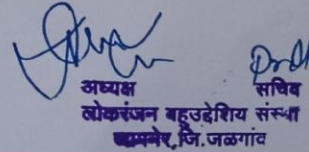 अध्यक्ष सचिव
लोकरंजन बहुउद्देशिय संस्था
जामनेर, जि.जळगांव